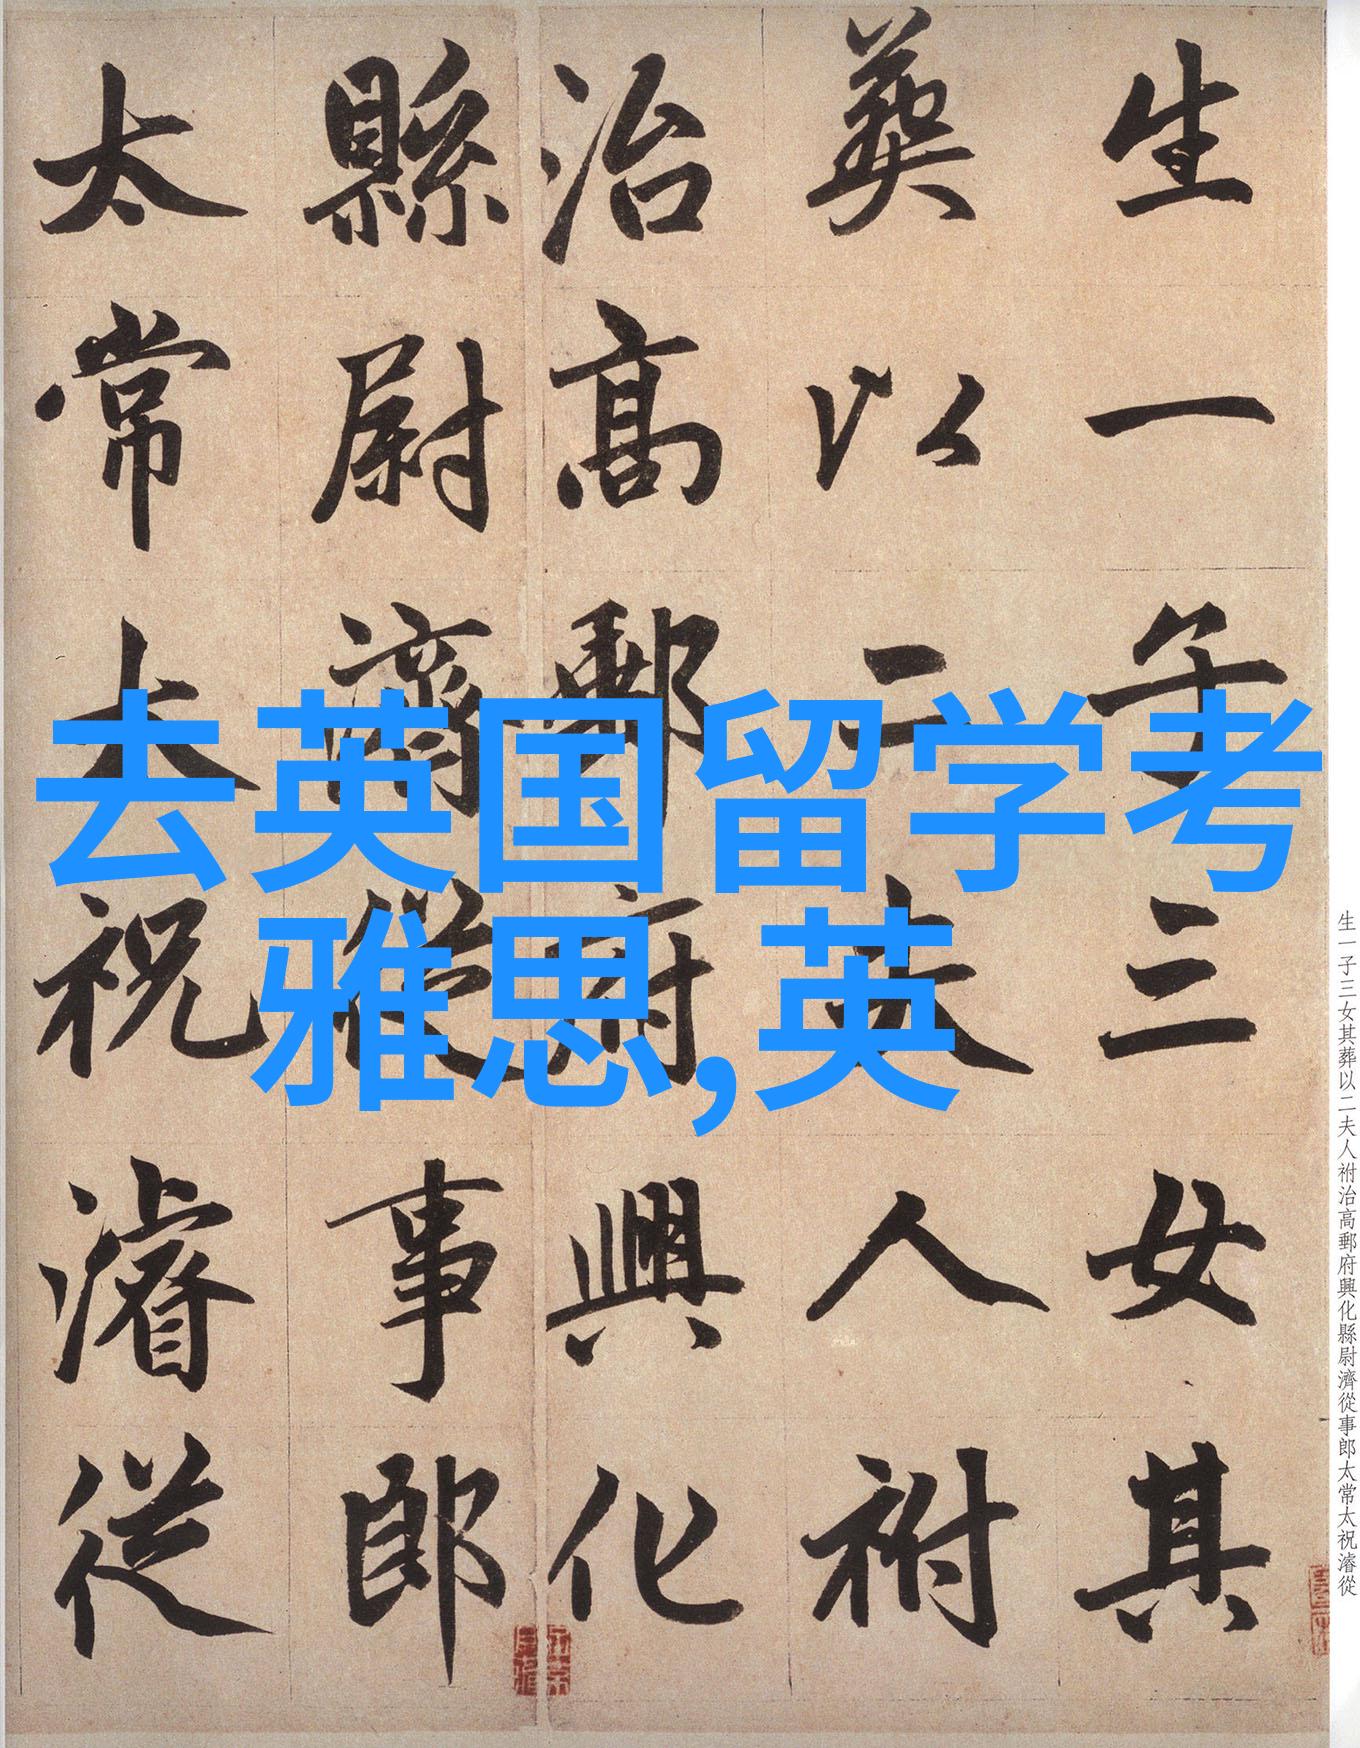 生一子三女其
葬以二夫人祔
治高郵府興化
縣尉濟從事郎
太常太祝濬從
去英国留学考
雅思,英
生一子三女其葬以二夫人祔治高郵府興化縣尉濟從事郎太常太祝濬從